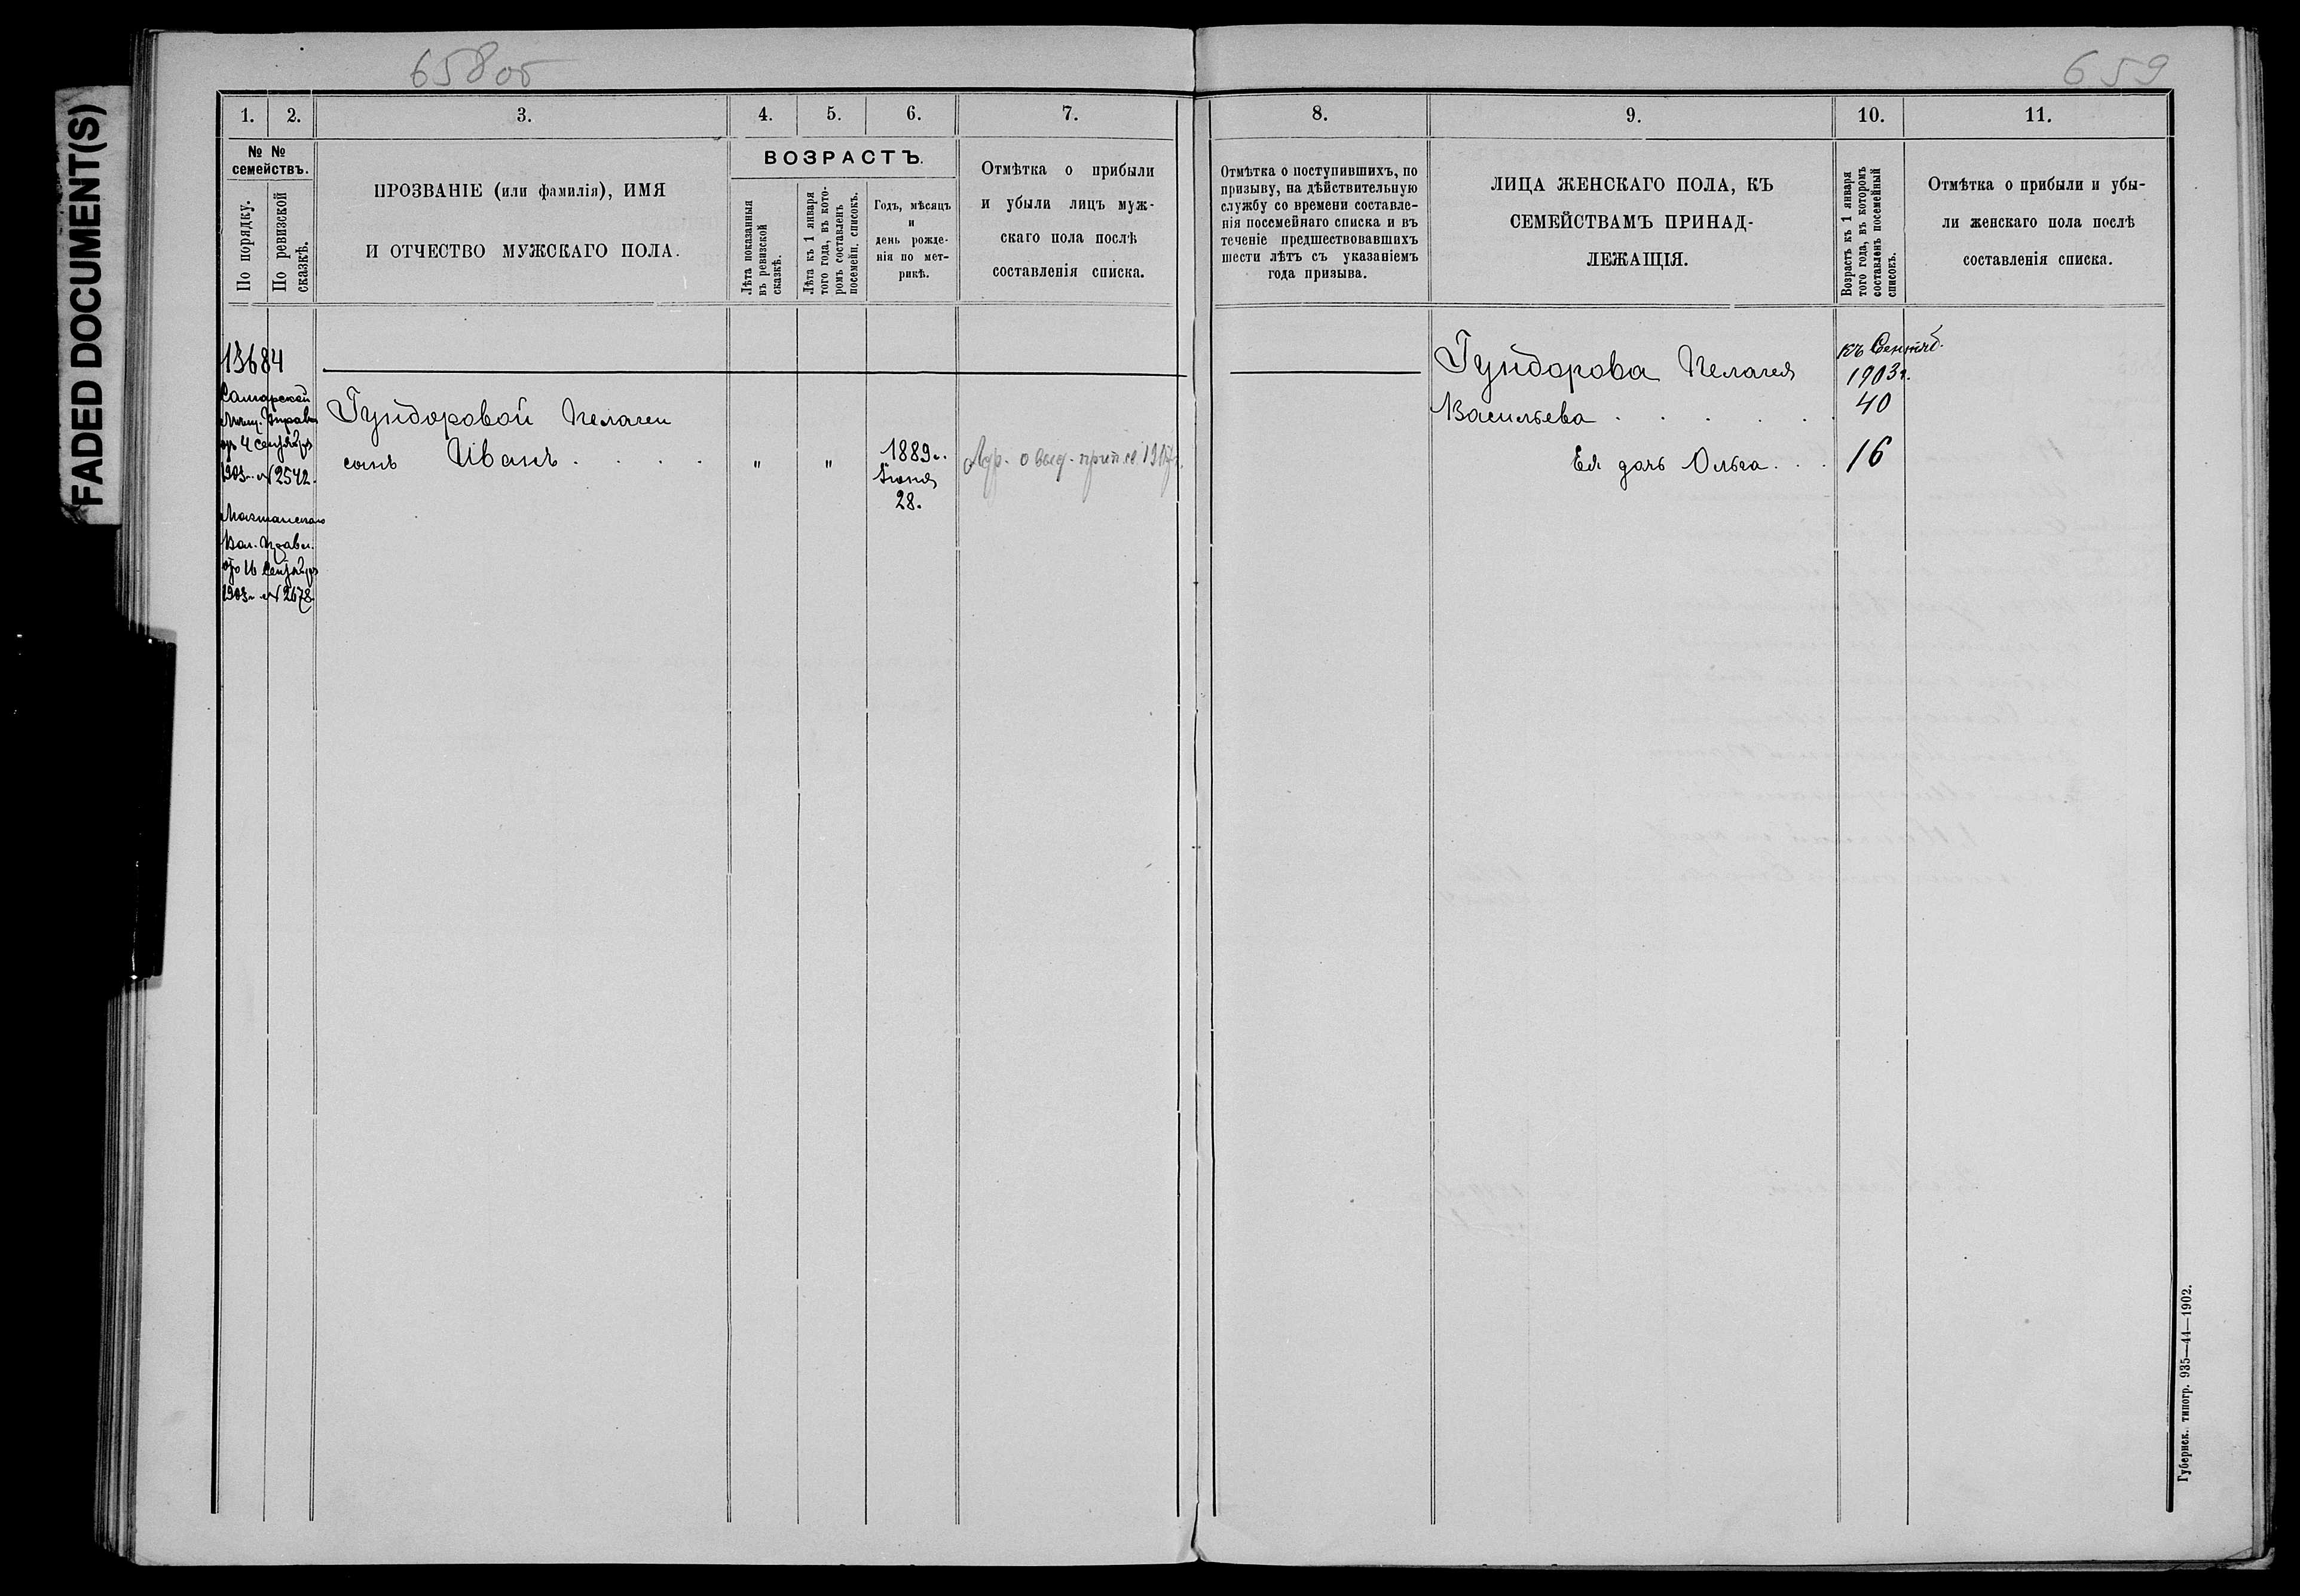 FADED DOCUMENT(S)
658об
1. 2. 3. 4. 5. 6. 7.
№ №
семействъ.
По порядку.
По ревизской
сказкѣ.
ПРОЗВАНІЕ (или фамилія), ИМЯ
И ОТЧЕСТВО МУЖСКАГО ПОЛА.
ВОЗРАСТЪ.
Лѣта показанныя
въ ревизской
сказкѣ.
Лѣта къ 1 января
того года, въ кото-
ромъ составленъ
посемейн. списокъ.
Годъ, мѣсяцъ
и
день рожде-
нія по мет-
рикѣ.
Отмѣтка о прибыли
и убыли лицъ муж-
скаго пола послѣ
составленія списка.
13684
Самарской
Мѣщ. Управы
отъ 4 сентября
1903 г. № 2542.
Вол. Правл.
отъ 16 сентября
1903 г. № 2678.
Гундоровой Пелагеи
сынъ Иванъ . . . . " " 1889 г.
Іюня
28.
о выд.
659
8. 9. 10. 11.
Отмѣтка о поступившихъ, по
призыву, на дѣйствительную
службу со времени составле-
нія посемейнаго списка и въ
теченіе предшествовавшихъ
шести лѣтъ съ указаніемъ
года призыва.
ЛИЦА ЖЕНСКАГО ПОЛА, КЪ
СЕМЕЙСТВАМЪ ПРИНАД-
ЛЕЖАЩІЯ.
Возрастъ къ 1 января
того года, въ которомъ
составленъ посемейный
списокъ.
Отмѣтка о прибыли и убы-
ли женскаго пола послѣ
составленія списка.
къ Сентяб.
1903 г.
Гундорова Пелагея
Васильева . . . . . 40
Ея дочь Ольга . . . 16
Губернск. типогр. 935—44—1902.